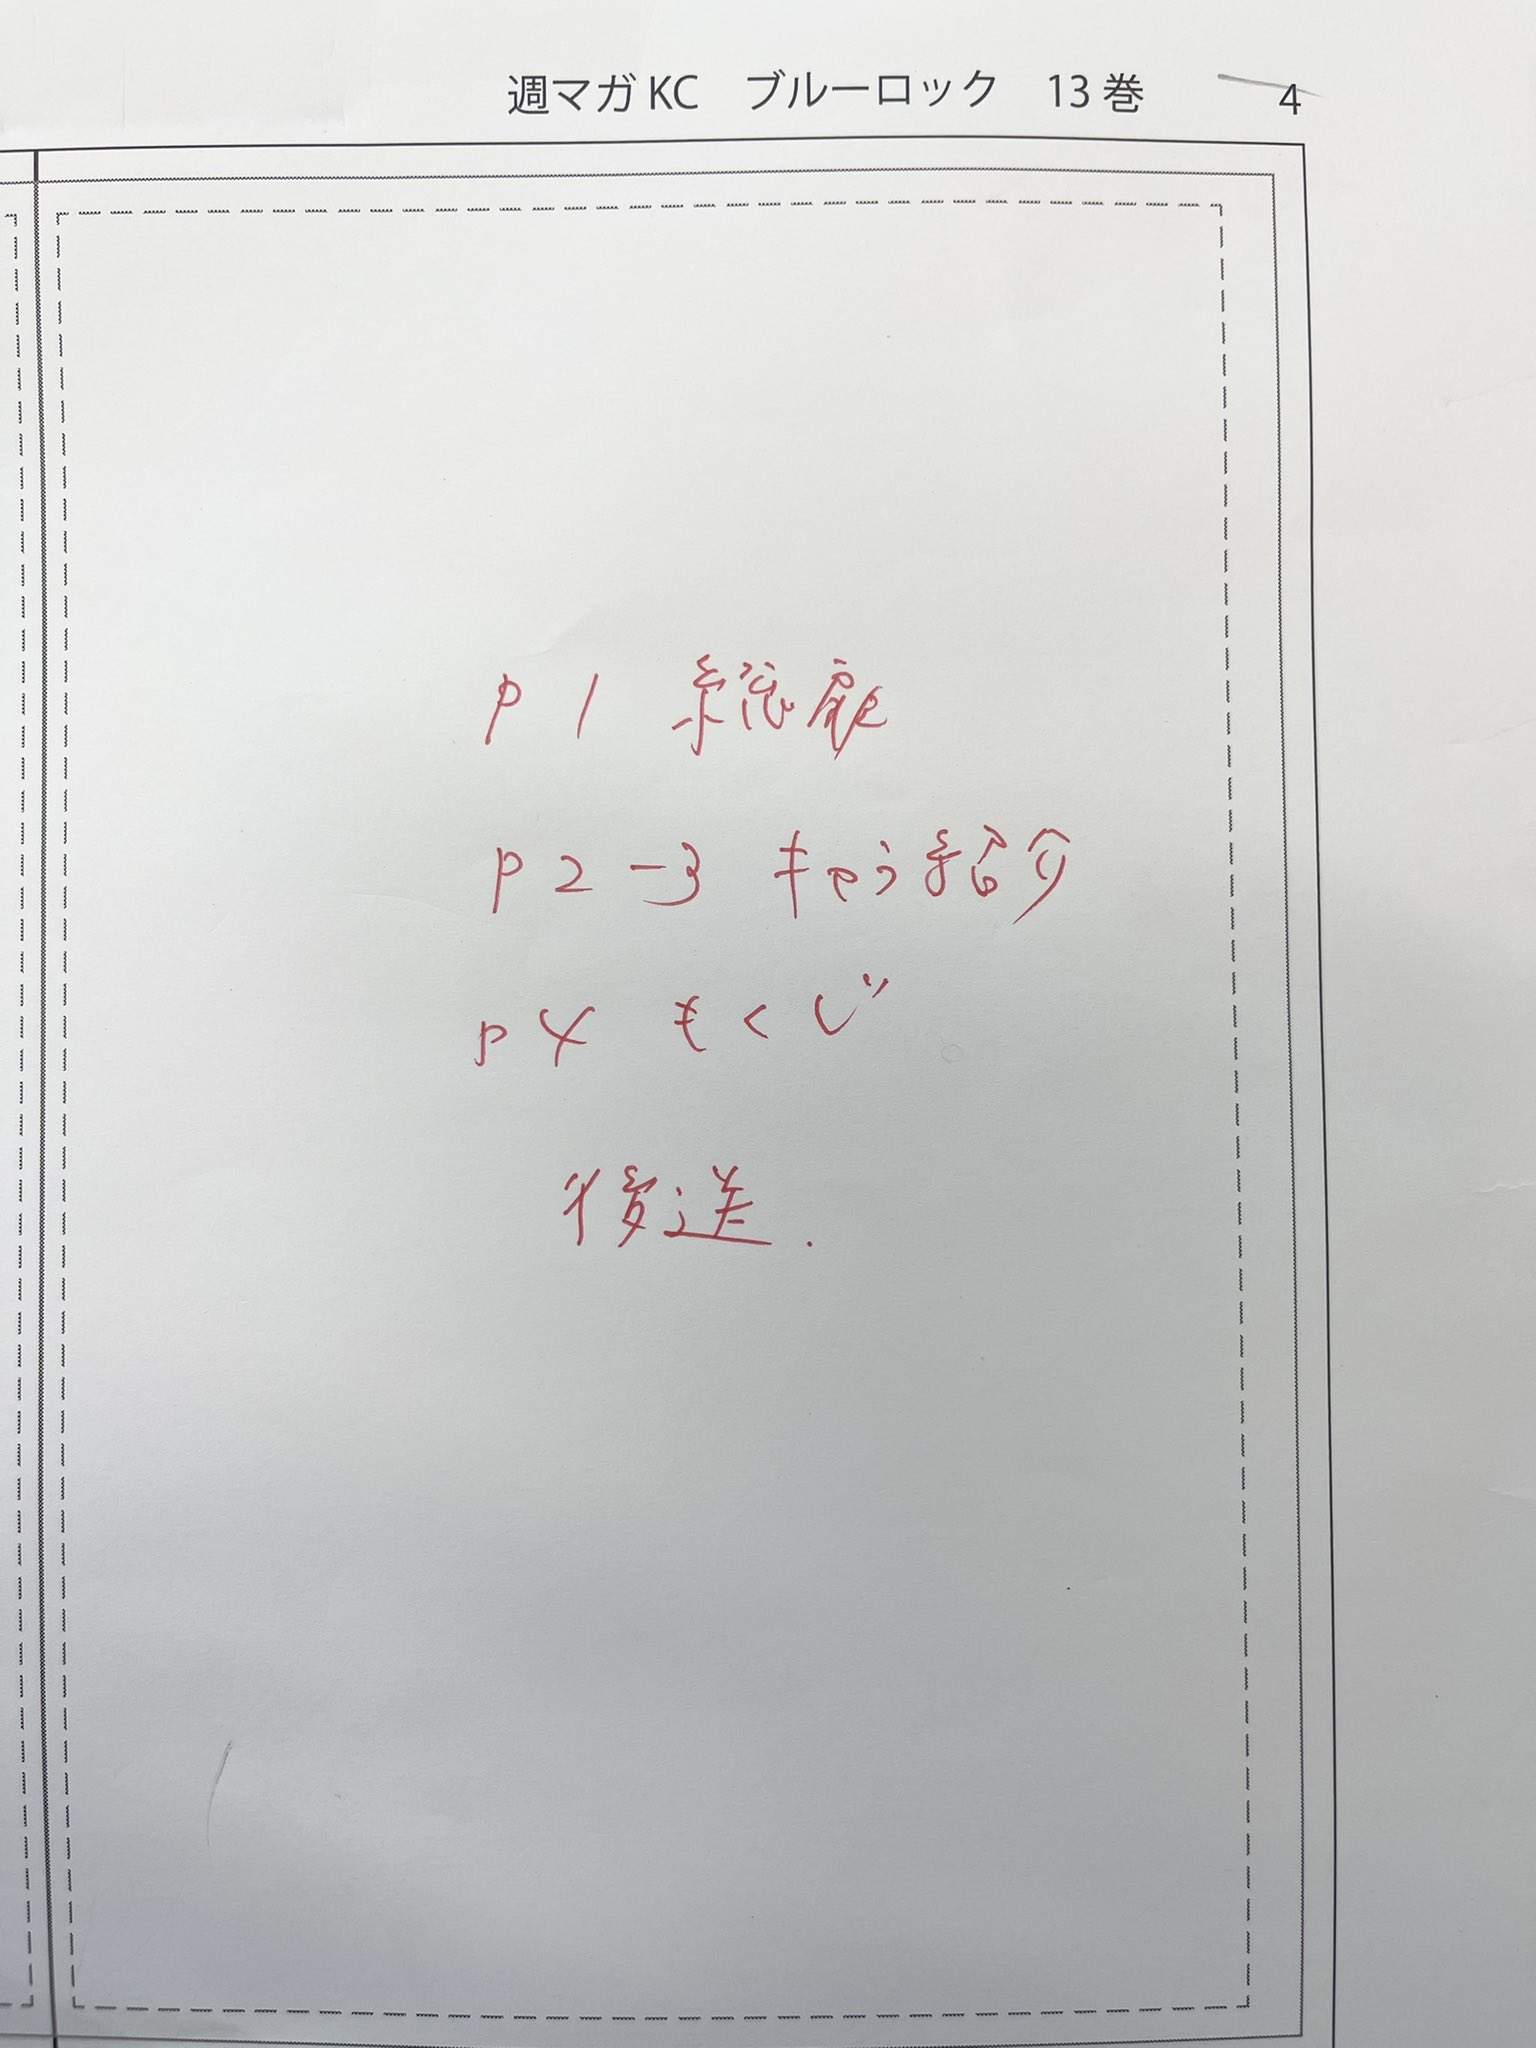 週マガKC ブルーロック 13巻 4
P1 総扉
P2-3 キャラ紹介
P4 もくじ
後送.